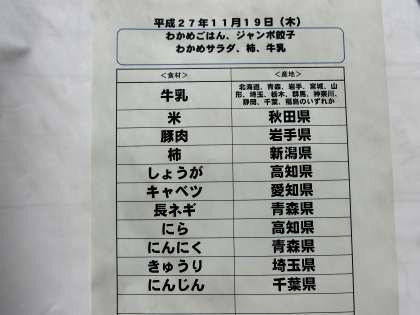 平成２７年１１月１９日（木）
わかめごはん、ジャンボ餃子
わかめサラダ、柿、牛乳
＜食材＞ ＜産地＞
牛乳 北海道、青森、岩手、宮城、山
形、埼玉、栃木、群馬、神奈川、
静岡、千葉、福島のいずれか
米 秋田県
豚肉 岩手県
柿 新潟県
しょうが 高知県
キャベツ 愛知県
長ネギ 青森県
にら 高知県
にんにく 青森県
きゅうり 埼玉県
にんじん 千葉県